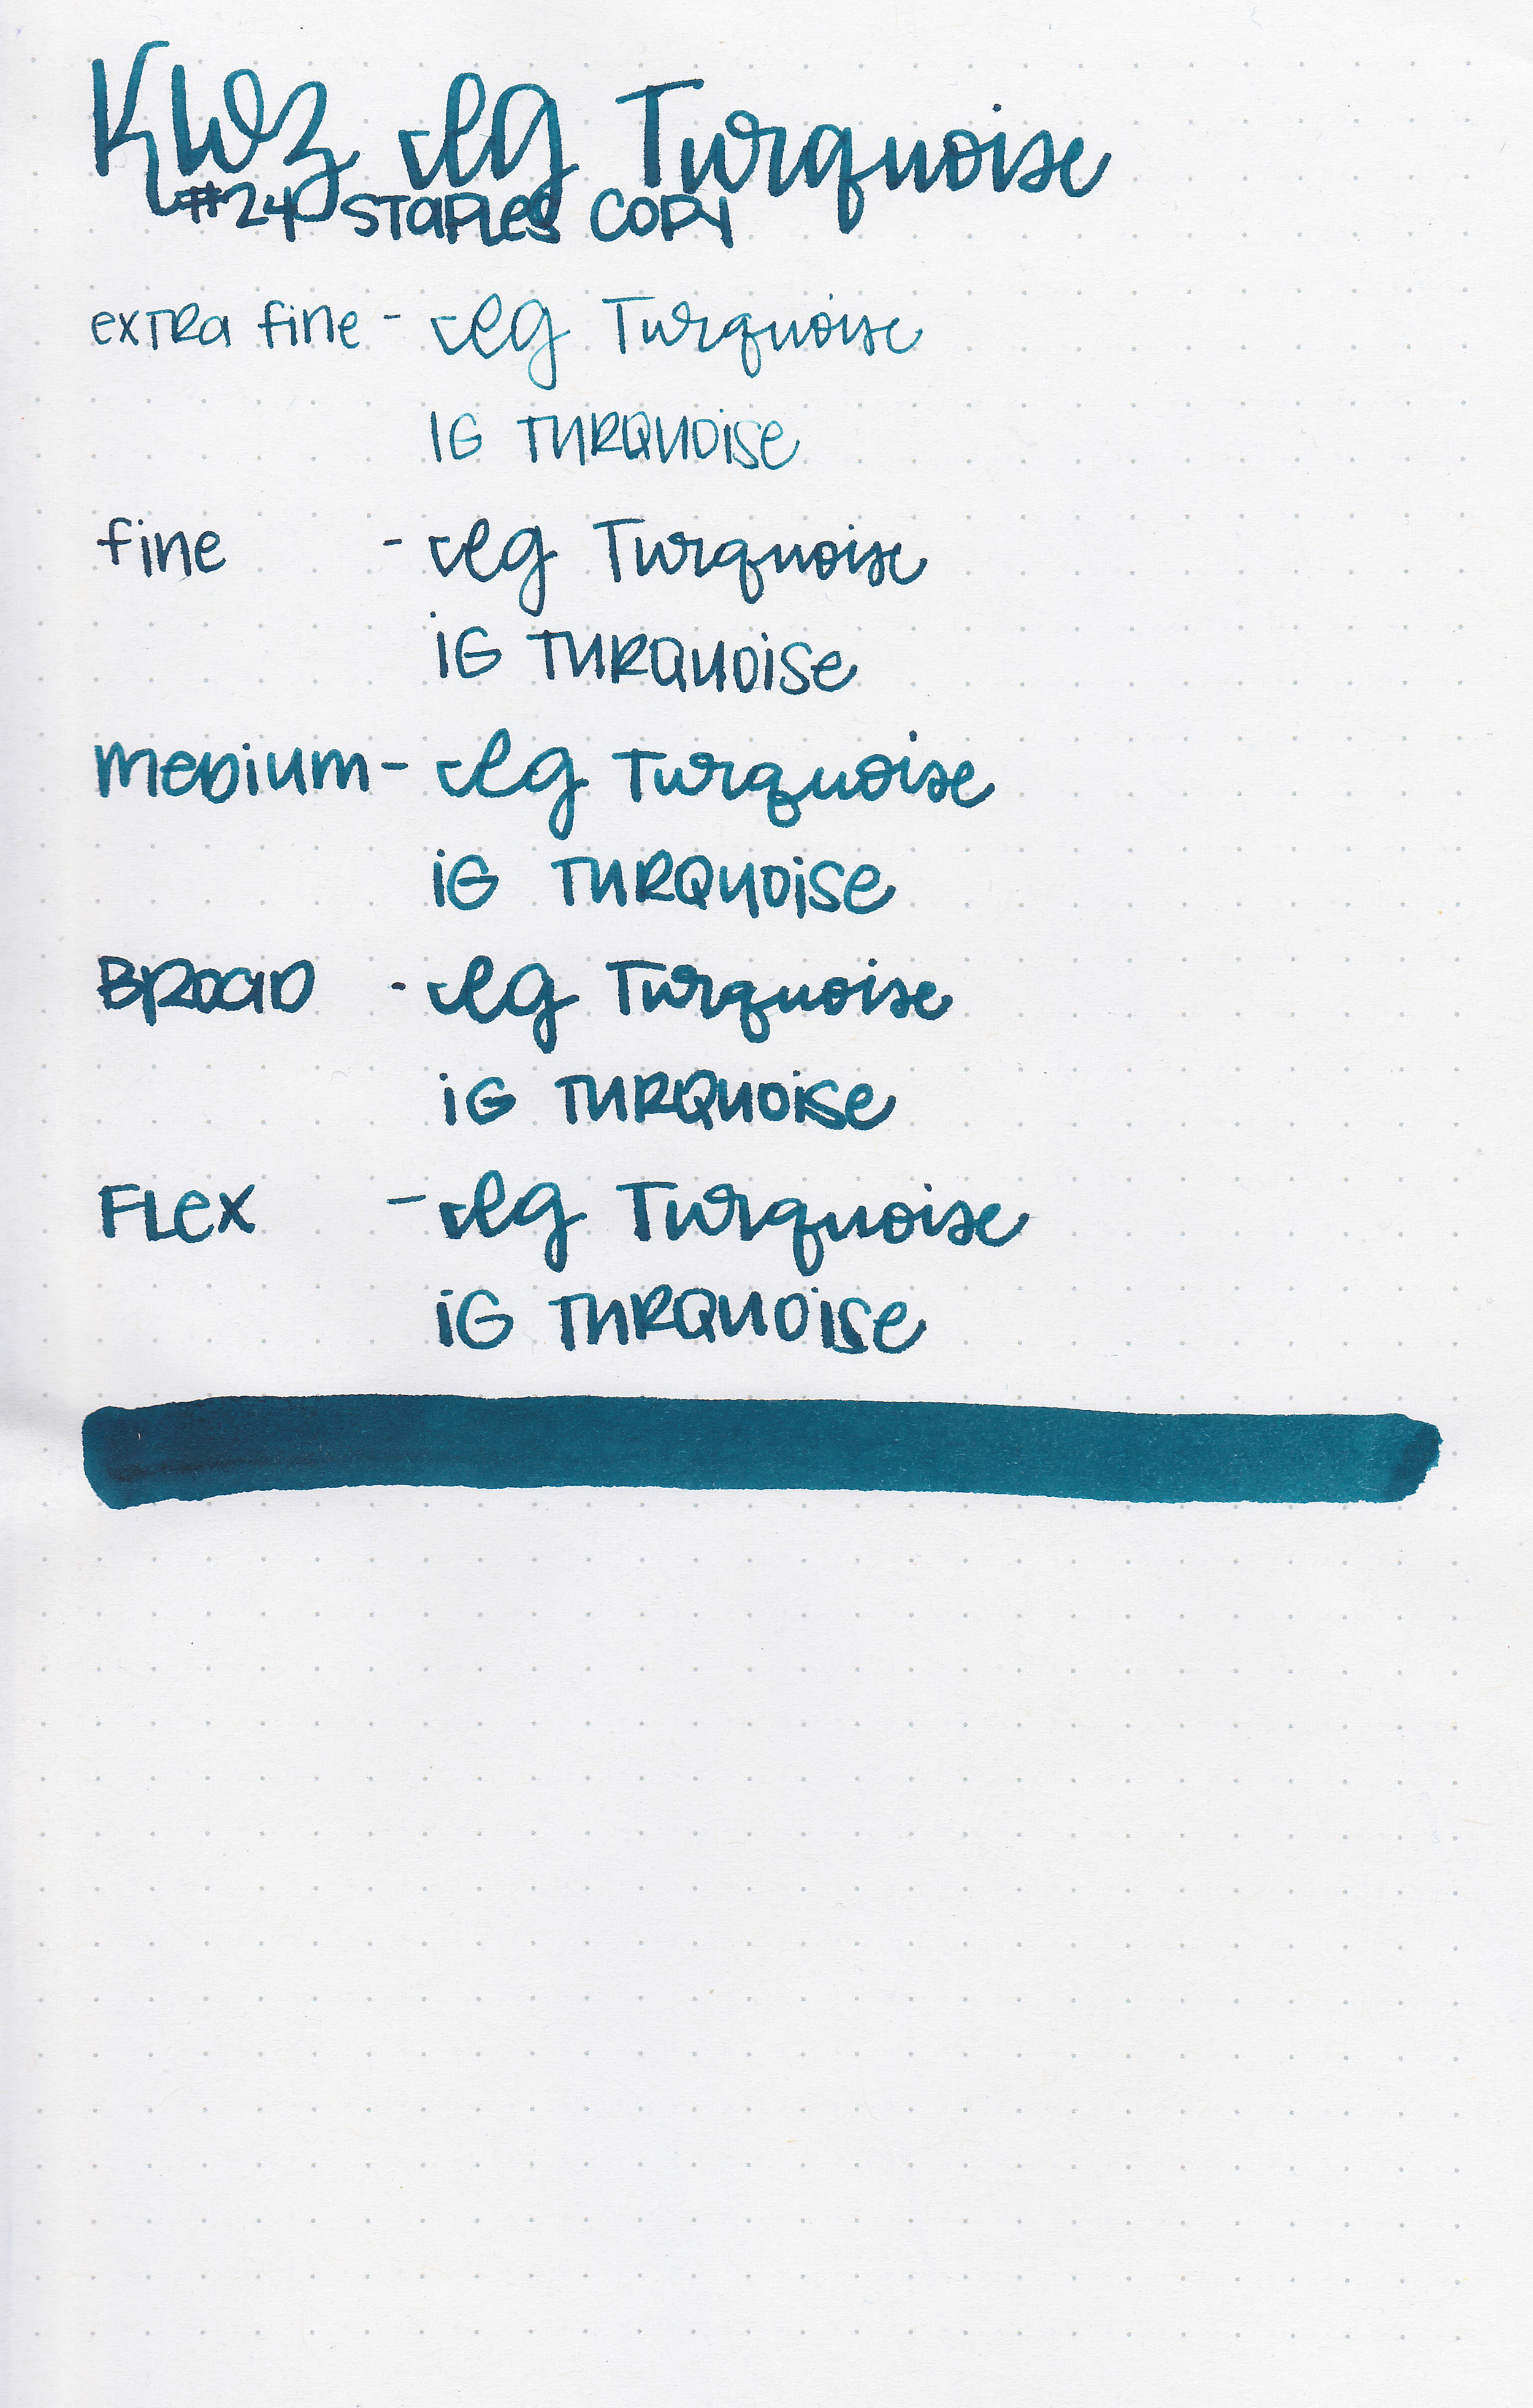 KWZ IG Turquoise
#24 STAPLES COPY
extra fine - IG Turquoise
IG TURQUOISE
fine - IG Turquoise
iG TURQUOISE
medium - IG Turquoise
iG TURQUOISE
BROAD - IG Turquoise
iG TURQUOISE
FLEX - IG Turquoise
iG TURQUOISE